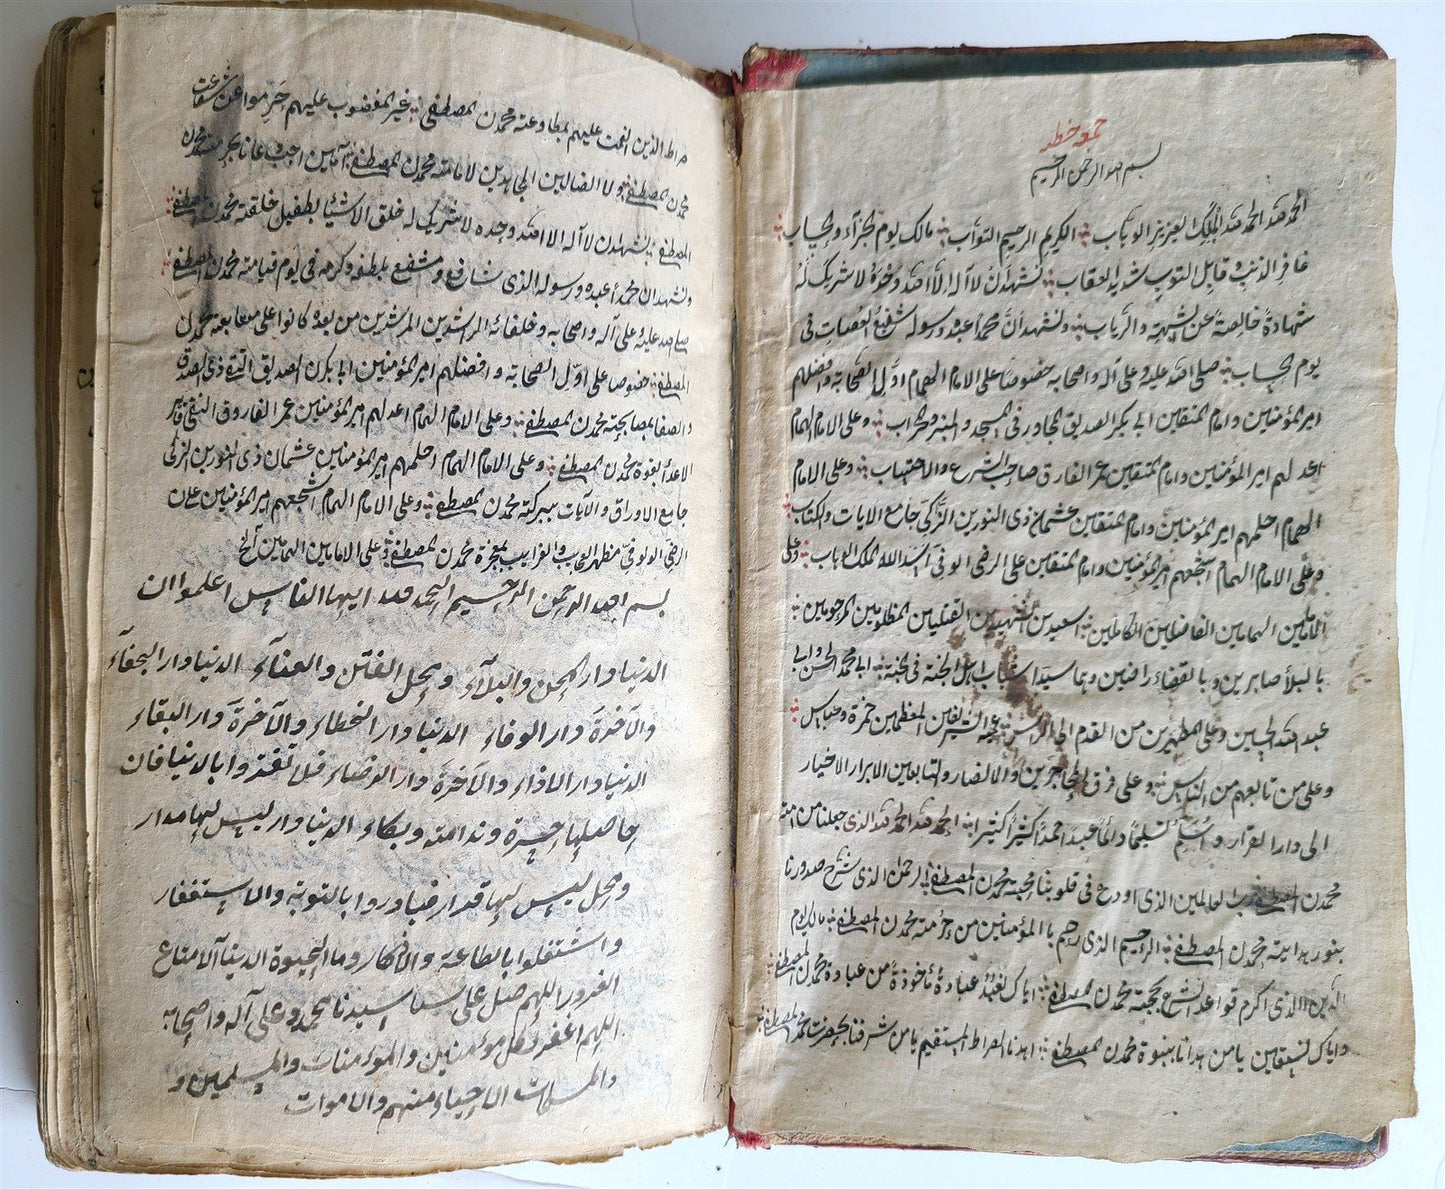 جمعه خطبه
بسم الله الرحمن الرحيم
الحمد لله الحمد لله الملك العزيز الوهاب الكريم الرحيم التواب مالك يوم الجزاء والحساب
غافر الذنب وقابل التوب شديد العقاب نشهد ان لا اله الا الله وحده لا شريك له
شهادة خالصة عن الشبهة والارياب ونشهد ان محمدا عبده ورسوله شفيع العصات في
يوم الحساب صلى الله عليه وعلى آله واصحابه خصوصا على الامام الهمام اول الصحابة وافضلهم
امير المؤمنين وامام المتقين ابي بكر الصديق المجاور في المسجد والمنبر والمحراب وعلى الامام الهمام
اعدلهم امير المؤمنين وامام المتقين عمر الفارق صاحب الشرع والاحتساب وعلى الامام
الهمام احلمهم امير المؤمنين وامام المتقين عثمان ذى النورين الزكى جامع الايات والكتاب
وعلى الامام الهمام اشجعهم امير المؤمنين وامام المتقين على الرضى الوفى اسد الله الملك الوهاب وعلى
الامامين الهمامين الفاضلين الكاملين السعيدين الشهيدين القتيلين المظلومين المرحومين
بالبلا صابرين وبالقضاء راضين وهما سيدا شباب اهل الجنة في الجنة ابي محمد الحسن وابي
عبد الله الحسين وعلى المطهرين من القدم الى الراس عميه الشريفين المعظمين حمزة وعباس
وعلى من تابعهم من الناس وعلى فرق المهاجرين والانصار والتابعين الابرار الاخيار
الى دار القرار وسلم تسليما دائما ابدا كثيرا كثيرا الحمد لله الحمد لله الذى جعلنا من امة
محمدن المصطفى رب العالمين الذى اودع في قلوبنا محبة محمدن المصطفى الرحمن الذى شرح صدورنا
بنور هداية محمدن المصطفى الرحيم الذى رحم باالمؤمنين من حرمة محمدن المصطفى مالك يوم
الدين الذى اكرم قواعد الشرع بحجة محمدن المصطفى اياك نعبد عبادة مأخوذة من عبادة محمدن المصطفى
واياك نستعين يا من هدانا بنبوة محمدن المصطفى اهدنا الصراط المستقيم يا من شرفنا بحضرت محمدن المصطفى
صراط الذين انعمت عليهم بمطاوعته محمدن المصطفى غير المغضوب عليهم حرموا عن شفاعت
محمدن المصطفى ولا الضالين الجاهدين لامانته محمدن المصطفى آمين
المصطفى نشهد ان لا اله الا الله وحده لا شريك له خلق الاشياء لطفيل خلقته محمدن المصطفى
ونشهد ان محمدا عبده ورسوله الذى شافع ومشفع بلطفه وكرمه في يوم قيامته محمدن المصطفى
صلى الله عليه على آله واصحابه وخلفائه الراشدين المرشدين من بعده كانوا على متابعة محمدن
المصطفى خصوصا على اول الصحابة وافضلهم امير المؤمنين ابي بكرن الصديق التقى ذى الصدق
والصفا بمصاحبته محمدن المصطفى وعلى الامام الهمام اعدلهم امير المؤمنين عمر الفاروق النقى قامع
الاعداء بقوة محمدن المصطفى وعلى الامام الهمام احلمهم امير المؤمنين عثمان ذى النورين الزكى
جامع الاوراق والآيات ببركته محمدن المصطفى وعلى الامام الهمام اشجعهم امير المؤمنين على ن
الرضى الوفى مظهر العجايب والغرايب بمعجزة محمدن المصطفى وعلى الامامين الهمامين الخ
بسم الله الرحمن الرحيم الحمد لله ايها الناس اعلموا ان
الدنيا دار المحن والبلآء ومحل الفتن والعنآء الدنيا دار الجفآء
والآخرة دار الوفاء الدنيا دار الخطاء والآخرة دار البقاء
الدنيا دار الاذاء والآخرة دار الرضاء فلا تغتروا بالدنيا فان
حاصلها حسرة وندامته وبكاء الدنيا دار ليس لها مدار
ومحل ليس لها قدار فبادروا بالتوبة والاستغفار
واشتغلوا بالطاعة والاذكار وما الحيوة الدنيا الا متاع
الغرور اللهم صل على سيدنا محمد وعلى آله واصحابه
اللهم اغفر لكل مؤمنين والمؤمنات والمسلمين و
والمسلمات الاحياء منهم والاموات